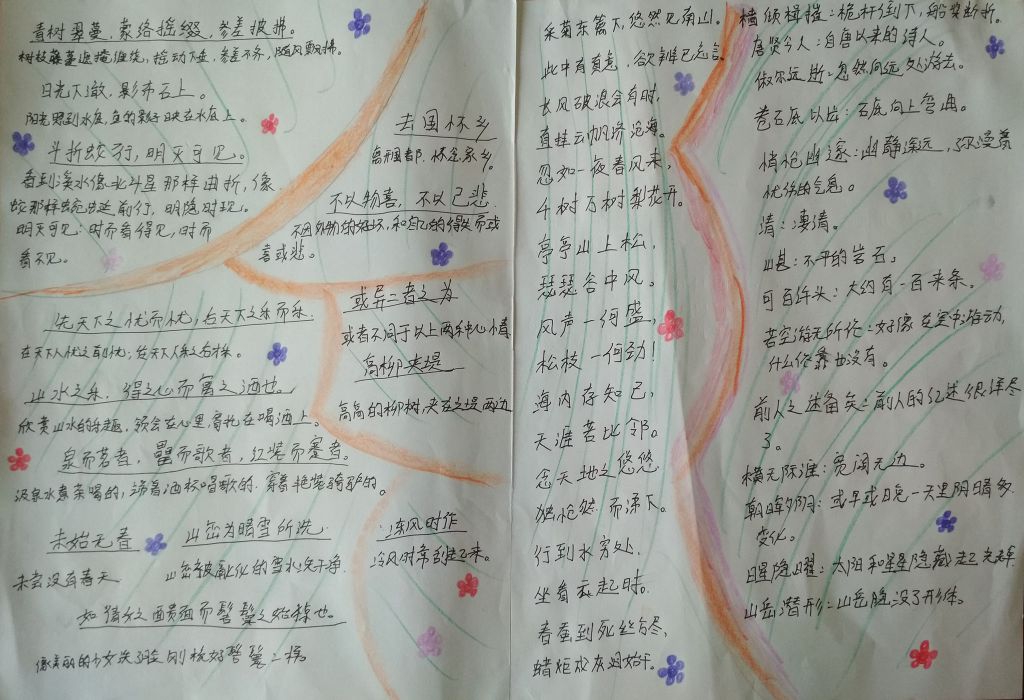 青树翠蔓，蒙络摇缀，参差披拂。
树枝藤蔓遮掩缠绕，摇动下垂，参差不齐，随风飘拂。
日光下澈，影布石上。
阳光照到水底，鱼的影子映在水底上。
斗折蛇行，明灭可见。
看到溪水像北斗星那样曲折，像
蛇那样蜿蜒前行，明隐时现。
明灭可见：时而看得见，时而
看不见。
去国怀乡
离开国都，怀念家乡。
不以物喜，不以己悲
不因外物的好坏，和自己的得失而或
喜或悲。
先天下之忧而忧，后天下之乐而乐.
在天下人忧之前忧，
山水之乐，得之心而寓之酒也。
欣赏山水的乐趣，领会在心里寄托在喝酒上。
泉而茗者，罍而歌者，红装而蹇者。
汲泉水煮茶喝的，端着酒杯唱歌的，穿着艳装骑驴的。
或异二者之为
或者不同于以上两种心情
高柳夹堤
高高的柳树，夹在之堤两边
未始无春
未尝没有春天
山峦为晴雪所洗
山峦被融化的雪水洗干净.
冻风时作
冷风时常刮起来。
如倩女之靧面而髻鬟之始掠也。
像美丽的少女洗了脸刚梳好髻鬟一样
采菊东篱下，悠然见南山。
此中有真意，欲辨已忘言。
长风破浪会有时，
直挂云帆济沧海。
忽如一夜春风来，
千树万树梨花开。
亭亭山上松，
瑟瑟谷中风。
风声一何盛，
松枝一何劲！
海内存知己，
天涯若比邻。
念天地之悠悠
独怆然而涕下。
行到水穷处.
坐看云起时.
春蚕到死丝方尽，
蜡炬成灰泪始干。
樯倾楫摧：桅杆倒下，船桨断折。
唐贤今人：自唐以来的诗人。
俶尔远逝：忽然向远处游去。
卷石底以出：石底向上弯曲。
悄怆幽邃：幽静深远，弥漫着
忧伤的气息。
清：凄清。
山甚：不平的岩石。
可百许头：大约有一百来条。
若空游无所依：好像在空中游动，
什么依靠也没有。
前人之述备矣：前人的记述很详尽
了。
横无际涯：宽阔无边。
朝晖夕阴：或早或晚一天里阴晴多
变化。
日星隐曜：太阳和星星隐藏起光辉.
山岳潜形：山岳隐没了形体。